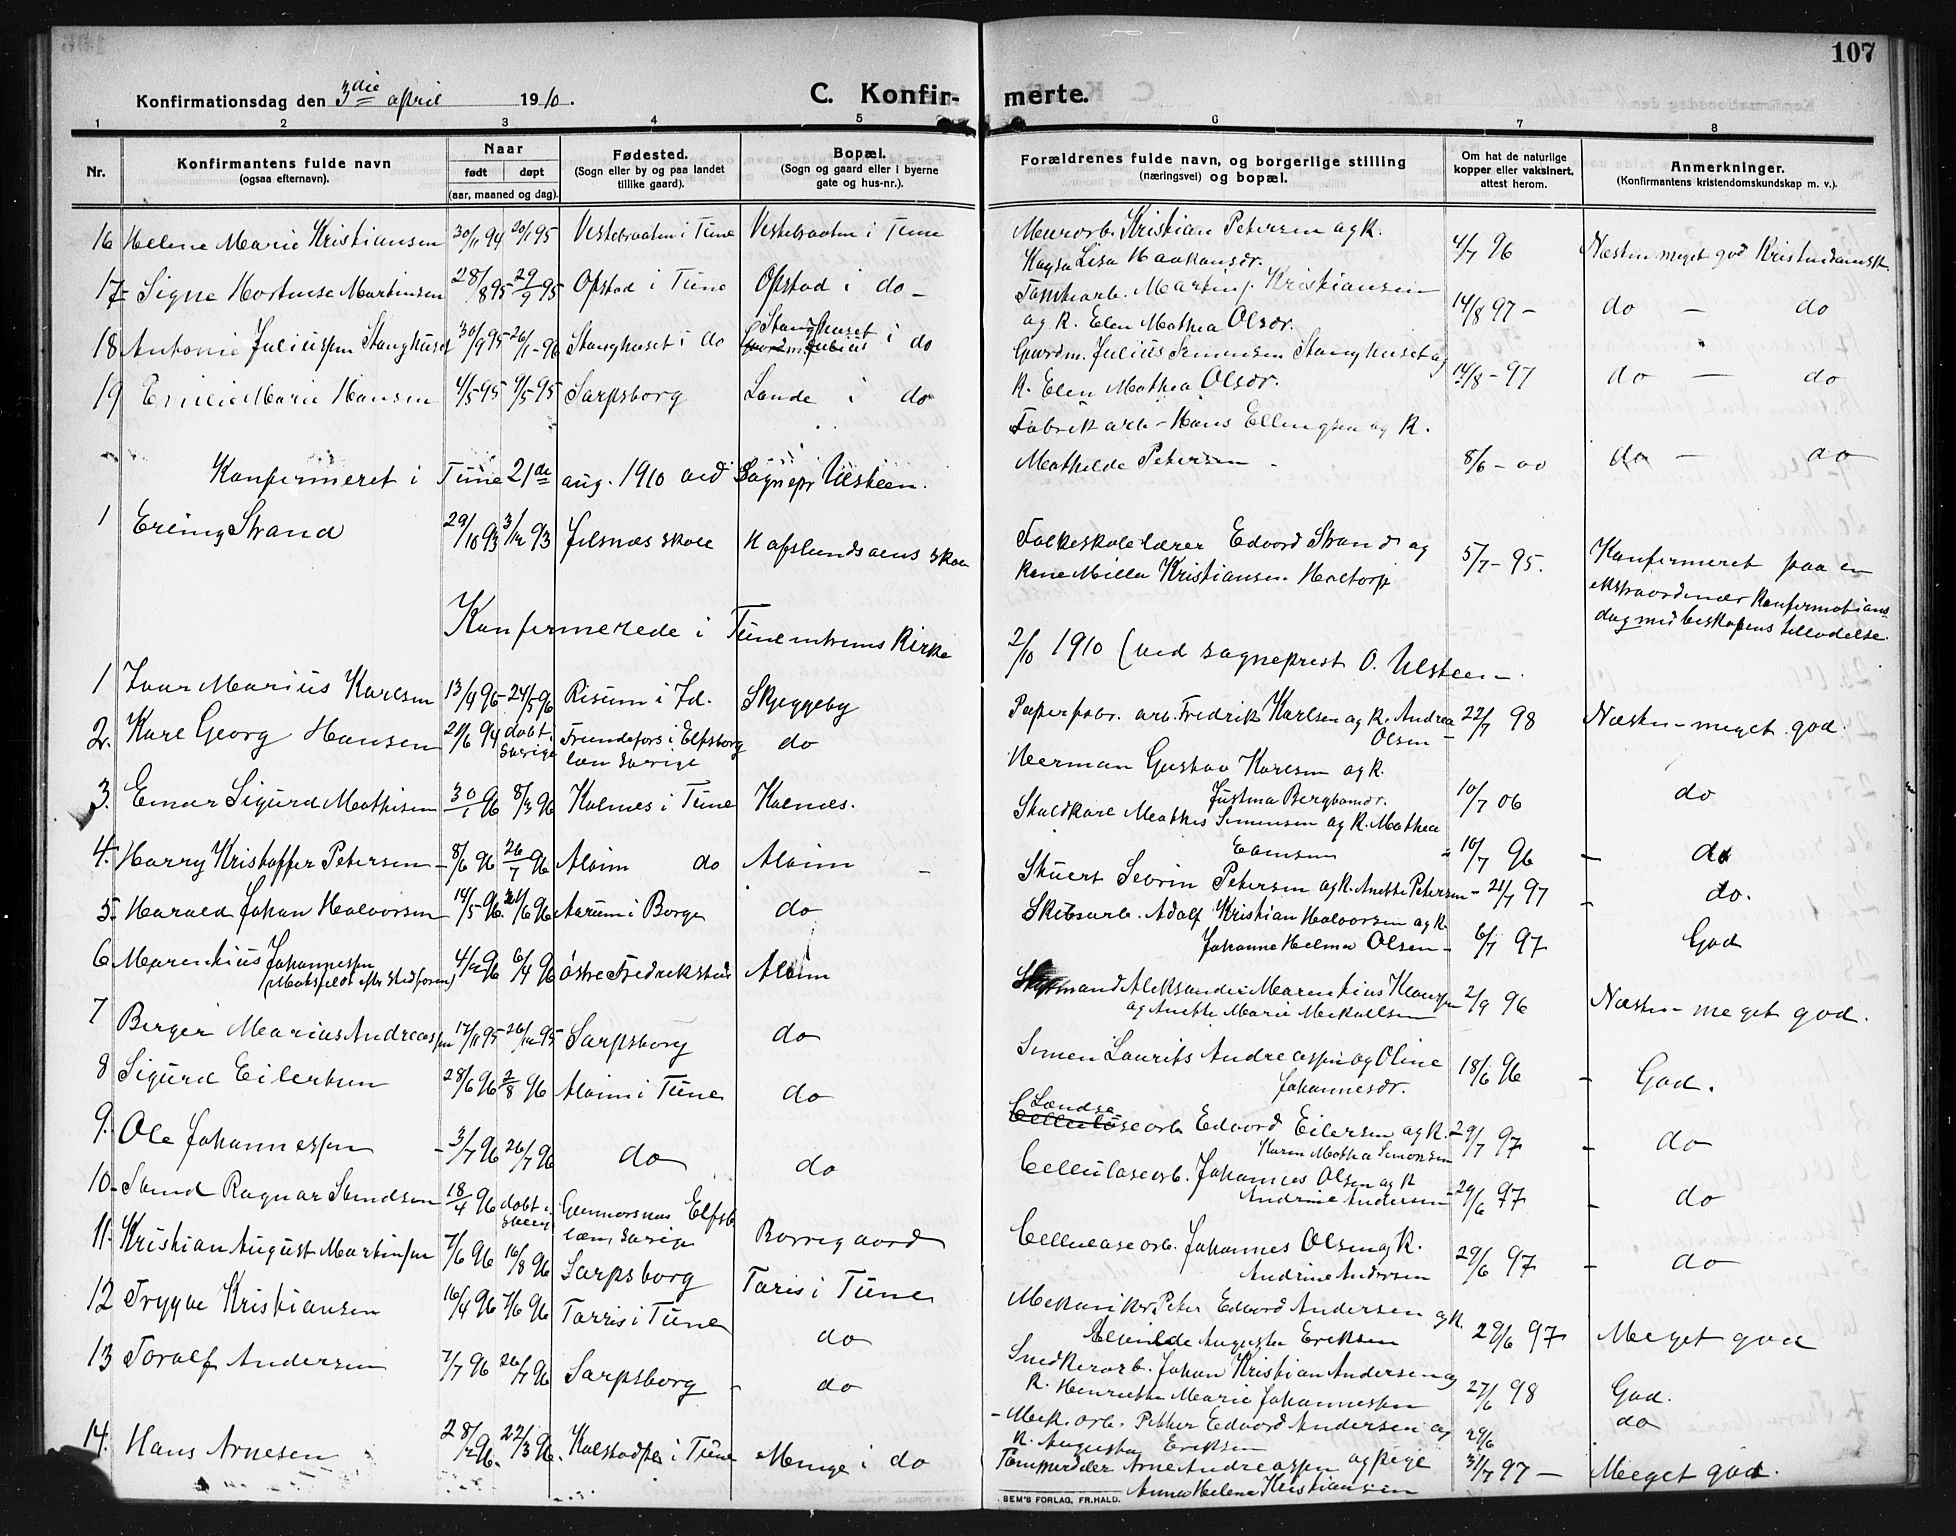 107
Konfirmationsdag den 3die april 1910.
C. Konfir- merte.
1 2 3 4 5 6 7 8
Nr. Konfirmantens fulde navn (ogsaa efternavn). Naar født døpt (aar, maaned og dag). Fødested. (Sogn eller by og paa landet tillike gaard). Bopæl. (Sogn og gaard eller i byerne gate og hus-nr.). Forældrenes fulde navn, og borgerlige stilling (næringsvei) og bopæl. Om hat de naturlige kopper eller vaksinert, attest herom. Anmerkninger. (Konfirmantens kristendomskundskap m. v.).
16 Helene Marie Kristiansen 30/11 94 20/1 95 Vestebraaten i Tune Vestebraaten i Tune Murarb. Kristian Petersen og K. 4/7 96 Næsten meget god Kristendomsk.
Kaysa Lisa Haakansdr.
17 Signe Hortense Martinsen 28/8 95 29/9 95 Opstad i Tune Opstad i do - Tomtearb. Martin J. Kristiansen 14/8 97 - do - do
og K. Elen Mathea Olsdr.
18 Antonie Juliussen Stanghuset 30/9 95 26/1 - 96 Stanghuset i do Stanghuset i do Gaardm. Julius Simensen Stanghuset og 14/8 - 97 do - do
K. Elen Mathea Olsdr.
19 Emilie Marie Hansen 4/5 95 9/5 95 Sarpsborg Lande i do Fabrikarb. Hans Ellingsen og K. 8/6 - 00 do - do
Mathilde Petersen -
Konfirmeret i Tune 21de aug. 1910 ved Sognepr Ulsteen.
1 Erling Strand 29/10 93 3/12 93 Jelsnæs skole Hafslundsøens skole Folkeskolelærer Edvard Strand og 5/7 - 95. Konfirmeret paa en
Kone Milla Kristiansen Haltorp ekstraordinær Konfirmations
dag med biskopens tilladelse.
Konfirmerede i Tune intrems Kirke 2/10 1910 (ved sogneprest O. Ulsteen -
1 Ivar Marius Karlsen 13/4 96 24/5 96 Risum i Id. Skjeggeby Papirfabr. arb. Fredrik Karlsen og K. Andrea 22/7 98 Næsten - meget god.
Olsen -
2. Karl Georg Hansen 21/6 94 døbt i Sverige Frendefors i Elfsborg læn Sverige do Herman Gustav Karlsen og K. 10/7 06 do
Justina Bergbomdr.
3. Einar Sigurd Mathisen 30/1 96 8/3 96 Kalnes i Tune Kalnes. Skuldkarl Mathis Simensen og K. Mathea 10/7 96 - do
4. Harry Kristoffer Petersen - 8/6 96 26/7 96 Alvim do Alvim - Stuert Sevrin Petersen og K. Anette Petersen - 21/7 97 - do.
5. Harald Johan Halvorsen 14/5 96 21/6 96 Aarum i Borge do Skibsarb. Adolf Kristian Halvorsen og K. 6/7 97 God
Johanne Helma Olsen -
6 Marentius Johannessen 4/12 96 6/4 96 Østre Fredrikstad Alvim Aleksander Marentius Klausen 2/9 96 Næsten - meget god.
og Anette Marie Mikalsen
7 Berger Marius Andreassen 17/11 95 26/12 95 Sarpsborg do Simen Laurits Andreassen og Oline 18/6 96 - God.
Johannesdr.
8 Sigurd Eilertsen 28/6 96 2/8 96 Alvim i Tune do Landse
Cellulosearb. Edvard Eilersen og K. 29/7 97 - do
Karen Mathea Simonsen
9. Ole Johannessen - 3/7 96 26/7 96 do do Cellulosearb. Johannes Olsen og K 29/6 97 - do
Andrine Andersen
10. Svend Ragnar Svendsen 18/4 96 døbt i Sverig Gunnarsnæs Elfsb. læn, Sverige Borregaard Cellulosearb. Johannes Olsen og K. 29/6 97 - do
Andrine Andersen
11. Kristian August Martinsen 7/6 96 16/8 96 Sarpsborg Taris i Tune Mekaniker Peter Edvard Andersen og K. 29/6 97 Meget god
Augusta Eriksen
12 Trygve Kristiansen 16/4 96 7/6 96 Tarris i Tune do Snedkerarb. Johan Kristian Andersen og 27/6 98 God.
K. Henriette Marie Johannessen
13 Toralf Andersen 7/7 96 26/7 96 Sarpsborg - do - Mek. arb. Petter Edvard Andersen og 29/6 do
K. Augusta Eriksen
14. Hans Arnesen 28/12 96. 22/3 96. Kalstadpl i Tune Menge i do Tømmerdeler Arne Andreassen og pige 31/7 97 - Meget god.
Anna Helene Kristiansen
SEM'S FORLAG, FR.HALD.